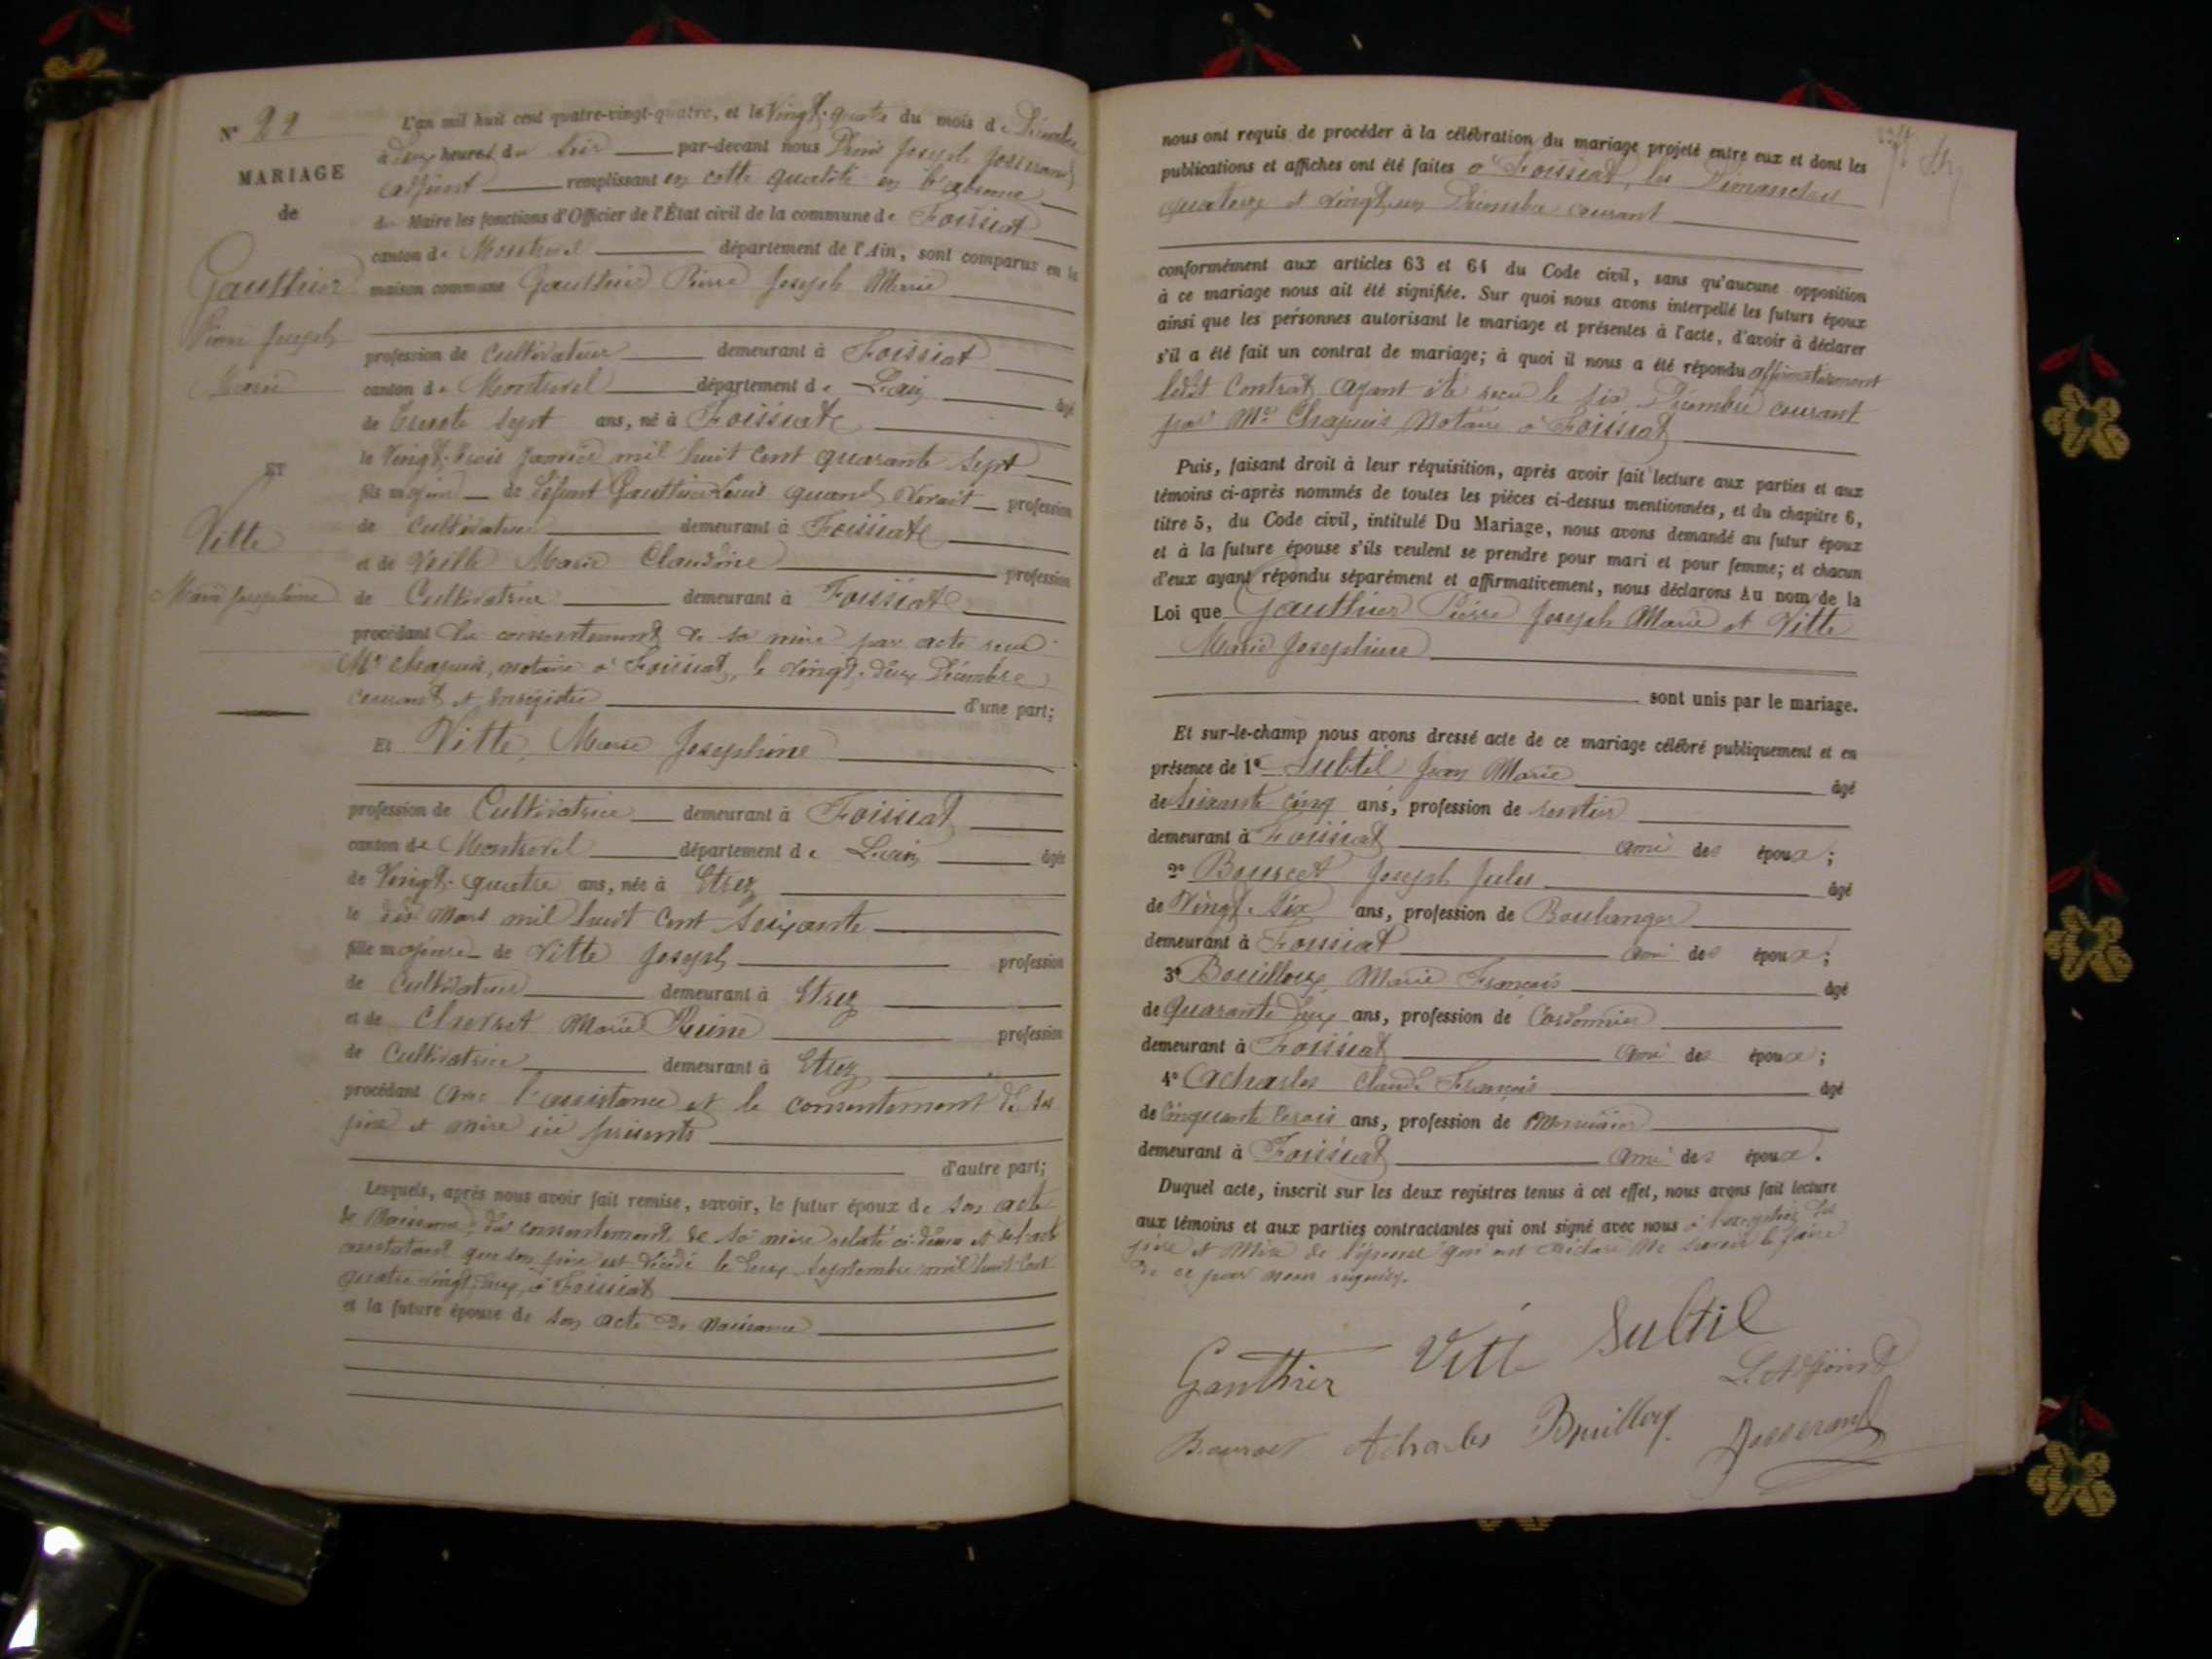 N° 22
MARIAGE
de
Gauthier
Pierre Joseph
Marie
ET
Vitte
Marie Josephine
L'an mil huit cent quatre-vingt-quatre, et le Vingt-quatre du mois de Décembre
à deux heures du soir par-devant nous Denis Joseph Josserand
adjoint remplissant en cette qualité en l'absence
du Maire les fonctions d'Officier de l'État civil de la commune de Foissiat
canton de Montrevel département de l'Ain, sont comparus en la
maison commune Gauthier Pierre Joseph Marie
profession de Cultivateur demeurant à Foissiat
canton de Montrevel département de L'ain âgé
de trente sept ans, né à Foissiat
le Vingt-trois Janvier mil huit cent quarante sept
fils majeur de défunt Gauthier Louis quand vivait profession
de Cultivateur demeurant à Foissiat
et de Veille Marie Claudine profession
de Cultivatrice demeurant à Foissiat
procédant du consentement de sa mère par acte reçu
Me Chapuis, notaire à Foissiat, le vingt-deux Décembre
courant et enregistré d'une part;
Et Vitte, Marie Josephine
profession de Cultivatrice demeurant à Foissiat
canton de Montrevel département de L'ain âgée
de Vingt-quatre ans, née à Etrez
le dix Mars mil huit Cent soixante
fille majeure de Vitte Joseph profession
de Cultivateur demeurant à Etrez
et de Chevret Marie Reine profession
de Cultivatrice demeurant à Etrez
procédant avec l'assistance et le consentement de ses
père et mère ici présents
d'autre part;
Lesquels, après nous avoir fait remise, savoir, le futur époux de son acte
de Naissance, du consentement de sa mère relaté ci-dessus et de l'acte
constatant que son père est décédé le deux Septembre mil huit cent
quatre vingt deux, à Foissiat
et la future épouse de son acte de naissance
nous ont requis de procéder à la célébration du mariage projeté entre eux et dont les
publications et affiches ont été faites à Foissiat, les Dimanches
quatorze et vingt-un Décembre courant
conformément aux articles 63 et 64 du Code civil, sans qu'aucune opposition
à ce mariage nous ait été signifiée. Sur quoi nous avons interpellé les futurs époux
ainsi que les personnes autorisant le mariage et présentes à l'acte, d'avoir à déclarer
s'il a été fait un contrat de mariage; à quoi il nous a été répondu affirmativement
ledit Contrat ayant été reçu le six Décembre courant
par Me Chapuis Notaire à Foissiat
Puis, faisant droit à leur réquisition, après avoir fait lecture aux parties et aux
témoins ci-après nommés de toutes les pièces ci-dessus mentionnées, et du chapitre 6,
titre 5, du Code civil, intitulé Du Mariage, nous avons demandé au futur époux
et à la future épouse s'ils veulent se prendre pour mari et pour femme; et chacun
d'eux ayant répondu séparément et affirmativement, nous déclarons Au nom de la
Loi que Gauthier Pierre Joseph Marie et Vitte
Marie Josephine
sont unis par le mariage.
Et sur-le-champ nous avons dressé acte de ce mariage célébré publiquement et en
présence de 1° Subtil Jean Marie âgé
de soixante cinq ans, profession de rentier
demeurant à Foissiat ami des époux;
2° Bourcet Joseph Jules âgé
de Vingt-six ans, profession de Boulanger
demeurant à Foissiat ami des époux;
3° Bouilloux Marie François âgé
de Quarante deux ans, profession de Cordonnier
demeurant à Foissiat ami des époux;
4° Acharles Claude François âgé
de Cinquante trois ans, profession de Menuisier
demeurant à Foissiat ami des époux.
Duquel acte, inscrit sur les deux registres tenus à cet effet, nous avons fait lecture
aux témoins et aux parties contractantes qui ont signé avec nous à l'exception des
père et mère de l'épouse qui ont déclaré ne savoir le faire
de ce par nous requis.
Gauthier Vitte Subtil
L'adjoint
Bourcet Acharles Bouilloux Josserand